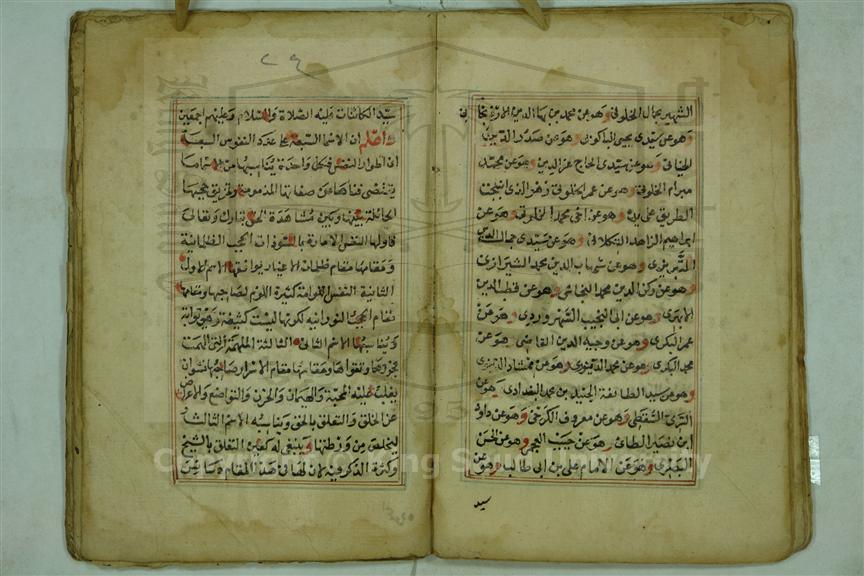 الشهير بجمال الخلوتي وهو عن محمد بن بهاء الدين الارزنجاني
وهو عن سيدي يحيى الباكوبي وهو عن صدر الدين
الخياني وهو عن سيدي الحاج عز الدين وهو عن محمد
ميرام الخلوتي وهو عن عمر الخلوتي وهو الذي انتهت
الطريق على يده وهو عن اخي محمد الخلوتي وهو عن
ابراهيم الزاهد التكلاني وهو عن سيدي جمال الدين
التبريزي وهو عن شهاب الدين محمد الشيرازي
وهو عن ركن الدين محمد النجاشي وهو عن قطب الدين
الابهري وهو عن ابي النجيب السهروردي وهو عن
عمر البكري وهو عن وجيه الدين القاضي وهو عن
محمد البكري وهو عن محمد الدينوري وهو عن ممشاد الدينوري
وهو عن سيد الطائفة الجنيد بن محمد البغدادي وهو عن
السري السقطي وهو عن معروف الكرخي وهو عن داود
ابن نصير الطائي وهو عن حبيب العجمي وهو عن الحسن
البصري وهو عن الامام علي بن ابي طالب وهو عن
سيد
٢٩
سيد الكائنات عليه الصلاة والسلام وعليهم اجمعين
واعلم ان الاسماء السبعة على عدد النفوس السبعة
اي اطوار النفس فكل واحدة يناسبها من الاسماء ما
يقتضى فناءها عن صفاتها المذمومة وتمزيق حجبها
الحائلة بينها وبين مشاهدة الحق تبارك وتعالى
فاولها النفس الامارة بالسوء ذات الحجب الظلمانية
ومقامها مقام ظلمات الاغيار يوافقها الاسم الاول
الثانية النفس اللوامة كثيرة اللوم لصاحبها ومقامها
مقام الحجب النورانية لكونها ليست كثيفة وهو توابة
ويناسبها الاسم الثاني الثالثة الملهمة التي الهمت
فجورها وتقواها ومقامها مقام الاسرار صاحبها نشوان
يغلب عليه المحبة والهيمان والحزن والتواضع والاعراض
عن الخلق والتعلق بالحق ويناسبه الاسم الثالث
ليتخلص من ورطتها وينبغي له كثرة التعلق بالشيخ
وكثرة الذكر فيه لان لها في هذا المقام